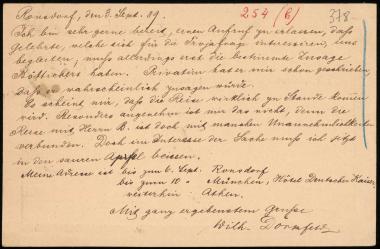 Ronsdorf, den 3. Sept. 89.
254 (6)
318
Ich bin sehr gerne bereit, einen Aufruf zu erlassen, daß
Gelehrte, welche sich für die Trojafrage interessiren, uns
begleiten; muß allerdings erst die bestimmte Zusage
Böttichers haben. Privatim hat er mir schon geschrieben,
daß er wahrscheinlich zusagen würde.
Es scheint mir, daß die Reise wirklich zu Stande kommen
wird. Besonders angenehm ist mir das nicht, denn die
Reise mit Herrn B. ist doch mit manchen Unannehmlichkeiten
verbunden. Doch im Interesse der Sache muß ich jetzt
in den sauren Apfel beissen.
Meine Adresse ist bis zum 6. Sept. Ronsdorf
bis zum 10. " München, Hôtel Deutscher Kaiser
weiterhin: Athen.
Mit ganz ergebenstem Grusse
Wilh. Dörpfeld.